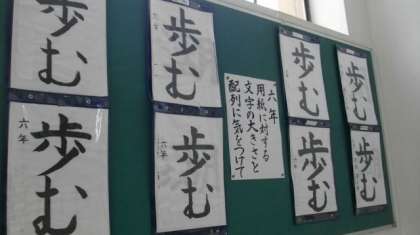 歩む
六年
歩む
六年
歩む
六年
歩む
六年
六年
用紙に対する
文字の大きさと
配列に気をつけて
歩む
六年
歩む
六年
歩む
歩む